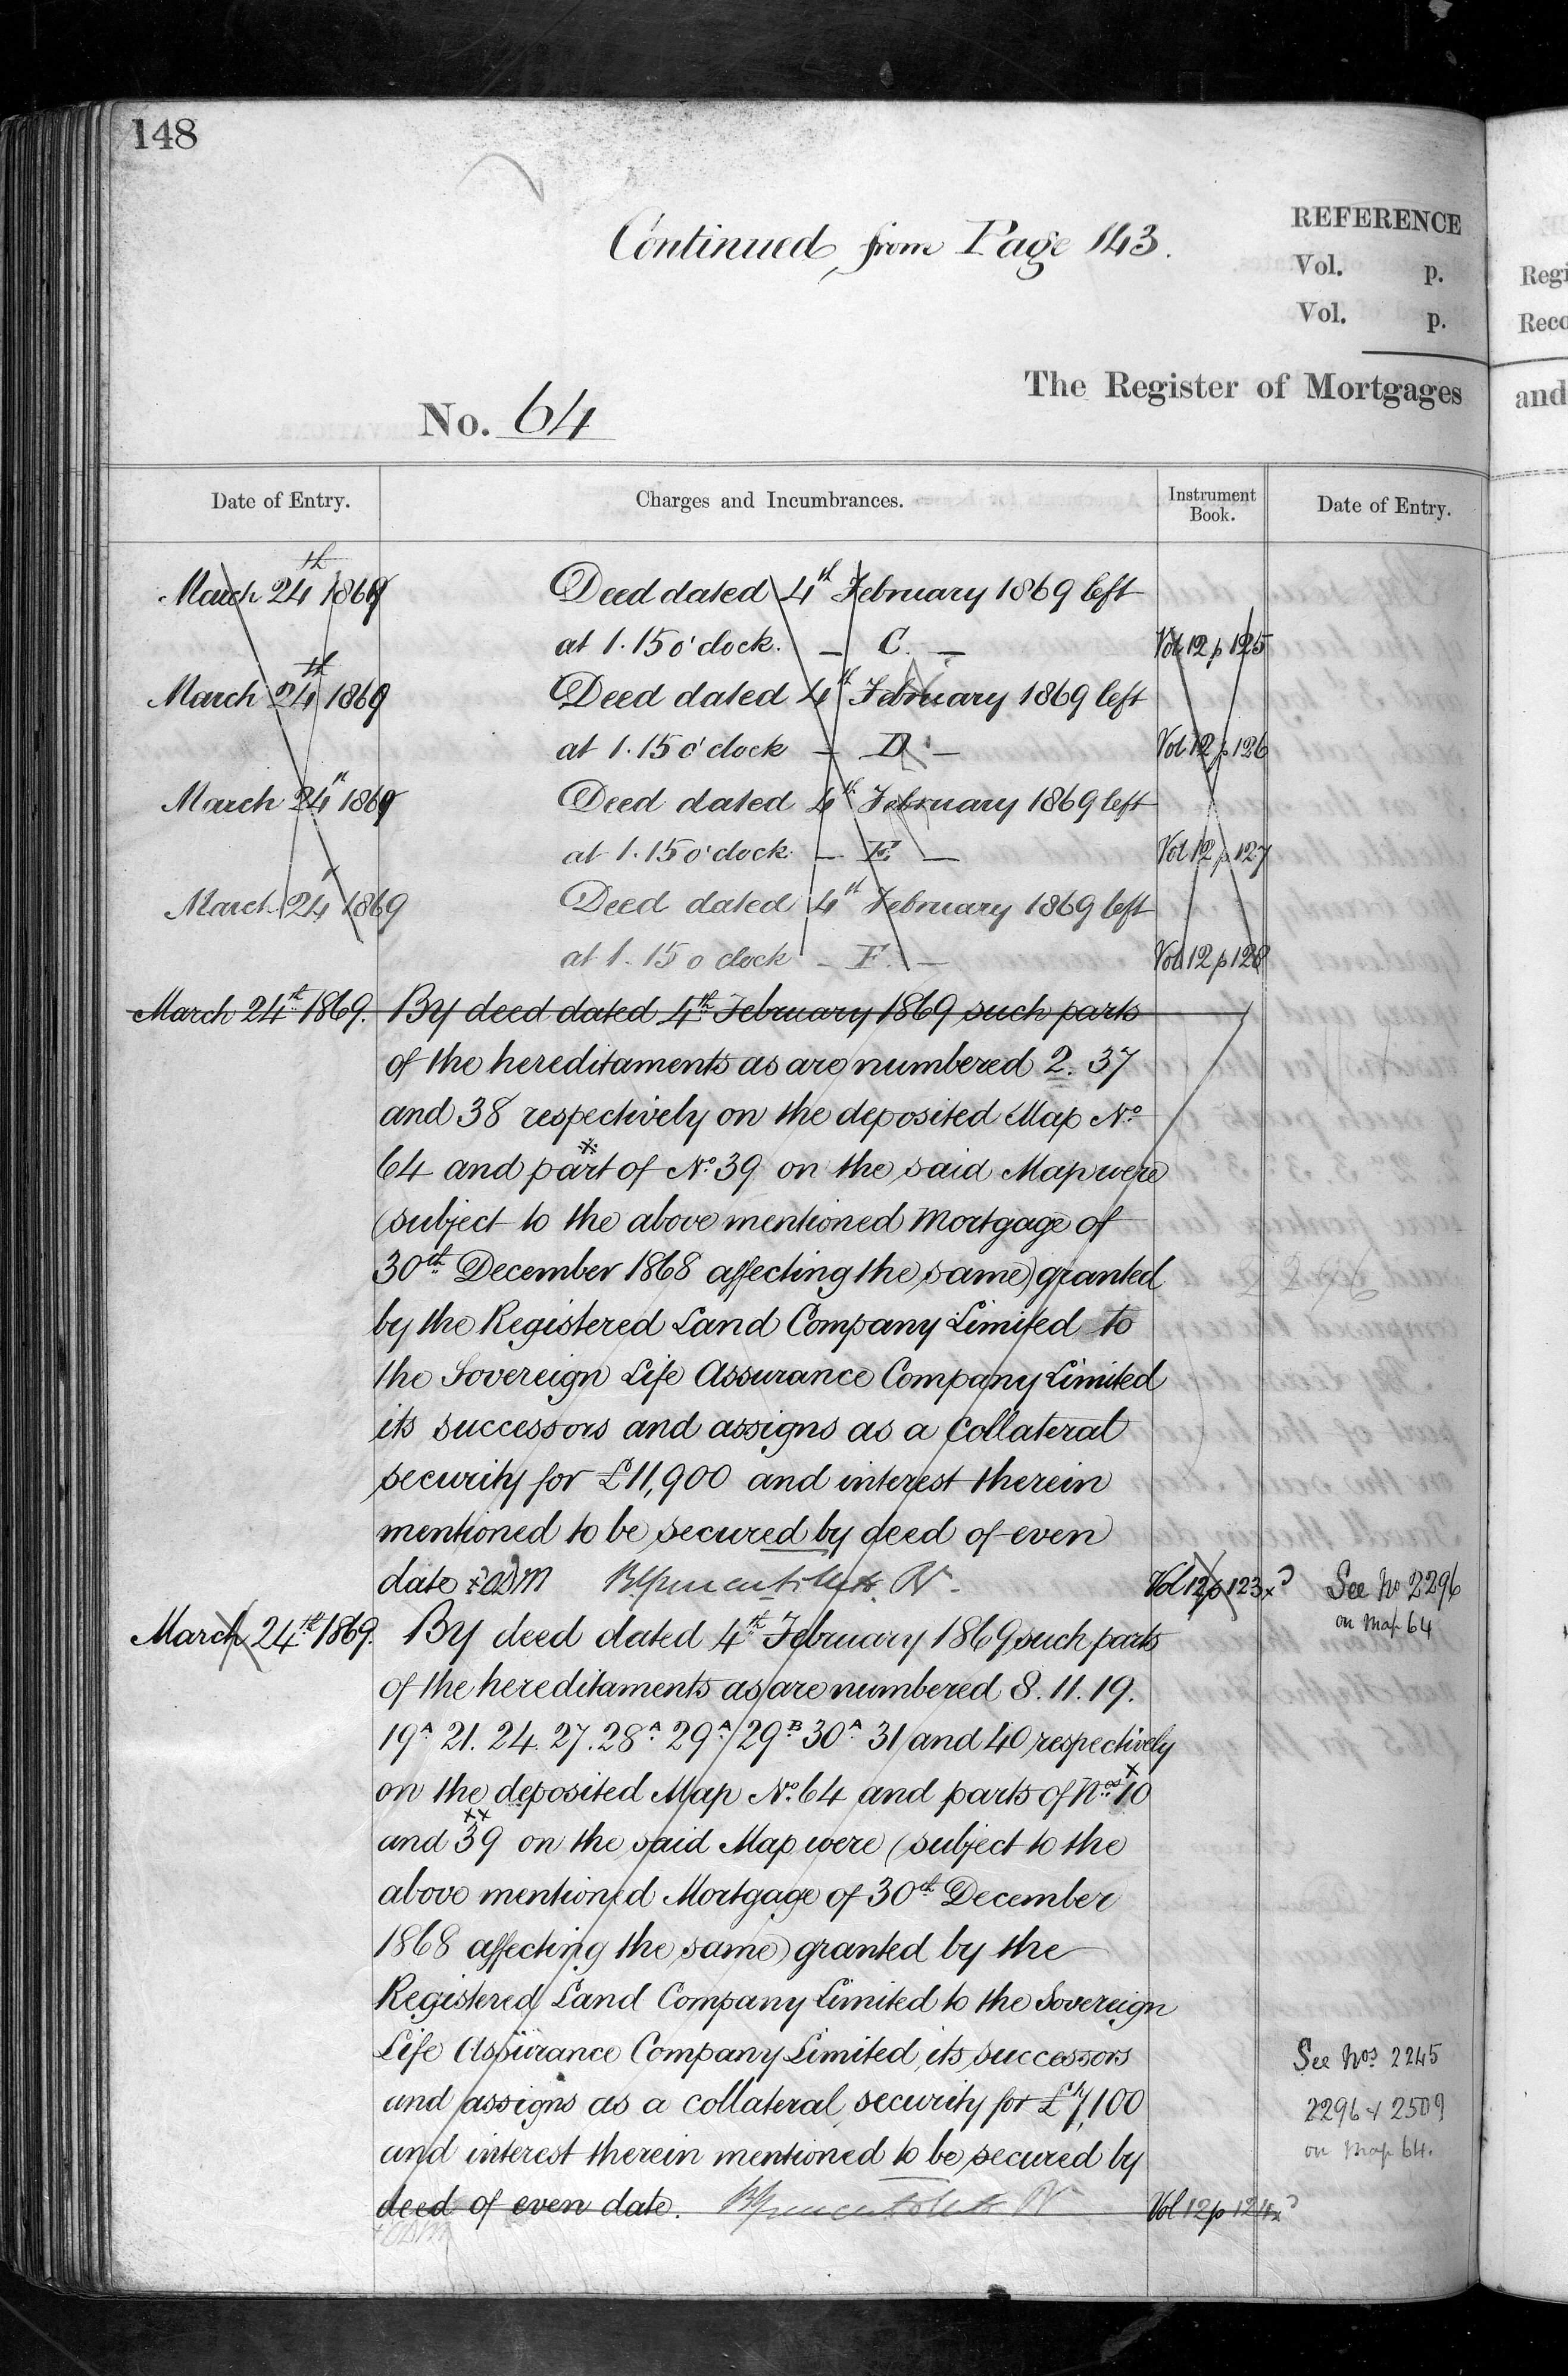 148
Continued from Page 143.
REFERENCE
Vol. p.
Vol. p.
The Register of Mortgages
No. 64
Date of Entry. Charges and Incumbrances. Instrument Book. Date of Entry.
March 24th 1869 Deed dated 4th February 1869 left
at 1.15 o'clock. — C. — Vol 12 p 125
March 24th 1869 Deed dated 4th February 1869 left
at 1.15 o'clock — D. — Vol 12 p 126
March 24th 1869 Deed dated 4th February 1869 left
at 1.15 o'clock — E — Vol 12 p 127
March 24 1869 Deed dated 4th February 1869 left
at 1.15 o clock — F. — Vol 12 p 128
March 24th 1869. By deed dated 4th February 1869 such parts
of the hereditaments as are numbered 2. 37
and 38 respectively on the deposited Map No
64 and part of No 39 on the said Map were
(subject to the above mentioned Mortgage of
30th December 1868 affecting the same) granted
by the Registered Land Company Limited to
the Sovereign Life Assurance Company Limited
its successors and assigns as a collateral
security for £11,900 and interest therein
mentioned to be secured by deed of even
date Vol 12 p 123 See No 2296
on Map 64
March 24th 1869. By deed dated 4th February 1869 such parts
of the hereditaments as are numbered 8. 11. 19.
19A 21. 24. 27. 28A 29A 29B 30A 31 and 40 respectively
on the deposited Map No. 64 and parts of Nos 10
and 39 on the said Map were (subject to the
above mentioned Mortgage of 30th December
1868 affecting the same) granted by the
Registered Land Company Limited to the Sovereign
Life Assurance Company Limited its successors See Nos 2245
and assigns as a collateral security for £7,100 2296 & 2509
and interest therein mentioned to be secured by on Map 64.
deed of even date. Vol 12 p 124
Regi
Reco
and